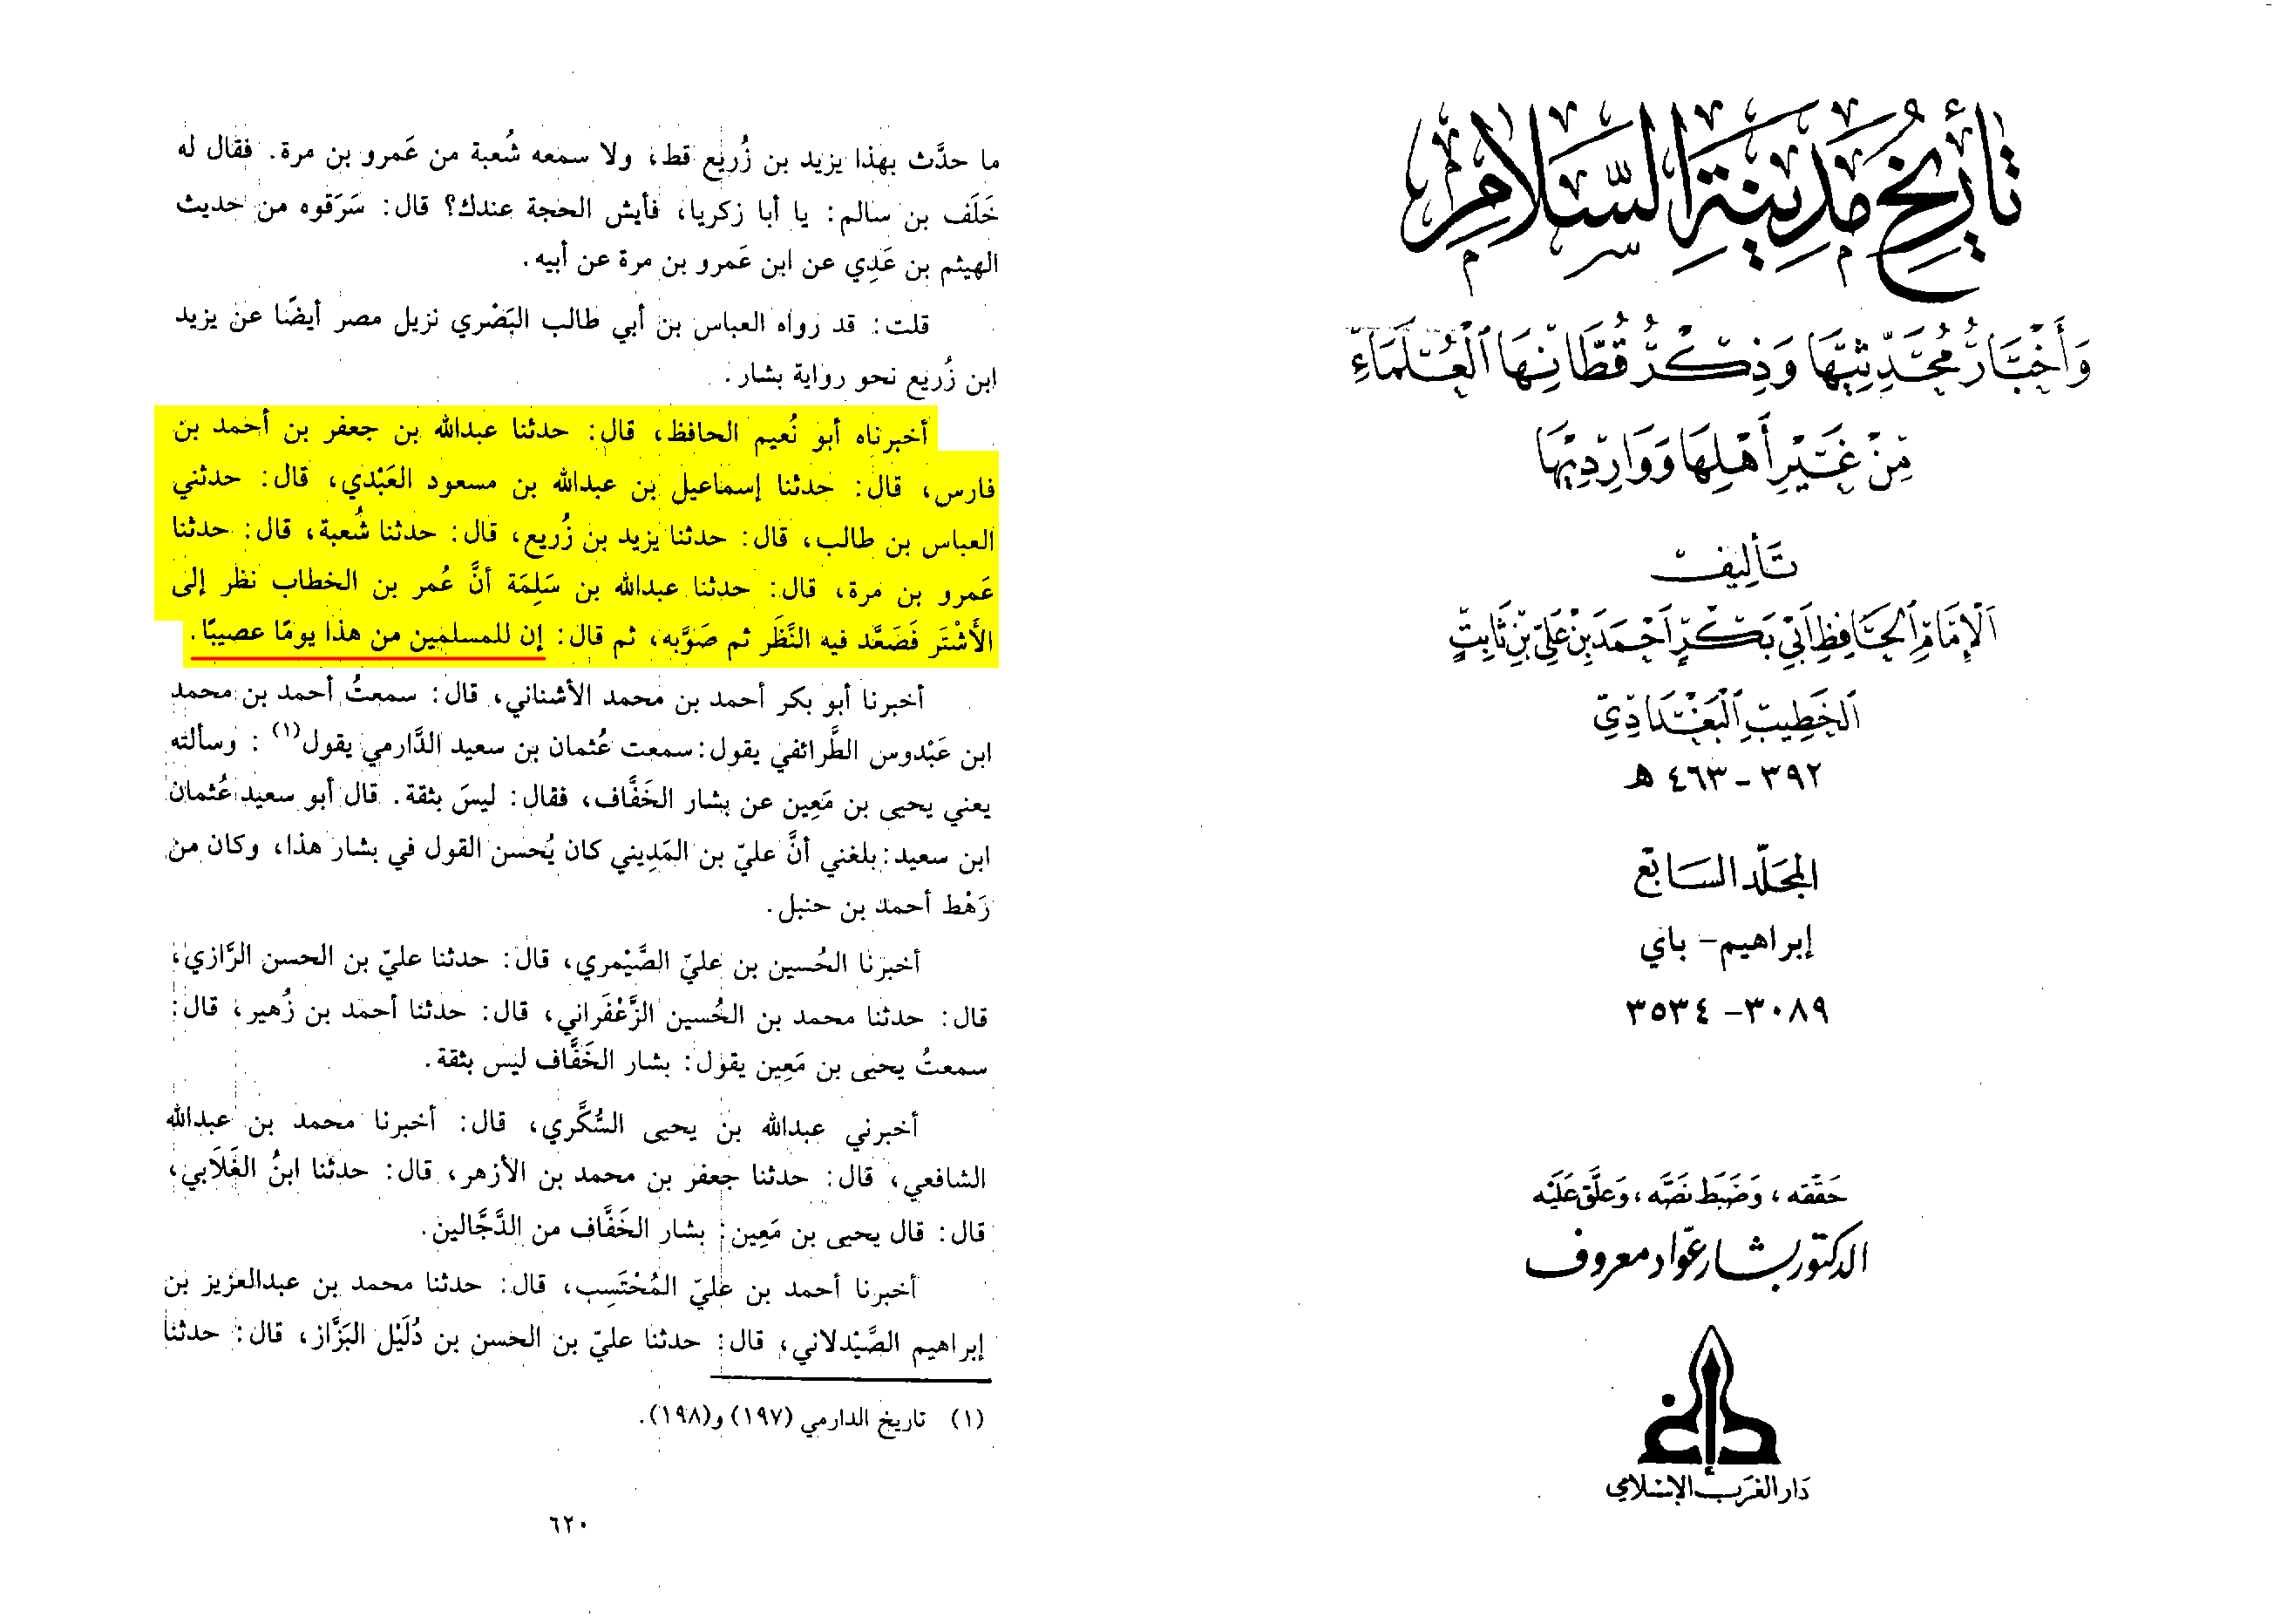 تأريخ مدينة السلام
وَأَخْبَارُ مُحَدِّثِيهَا وَذِكْرُ قُطَّانِهَا الْعُلَمَاءِ
مِنْ غَيْرِ أَهْلِهَا وَوَارِدِيهَا
تَأليف
الإِمَامِ الحَافِظِ أَبِي بَكْرٍ أَحْمَدَ بْنِ عَلِيِّ بْنِ ثَابِتٍ
الخَطِيبِ البَغْدَادِيِّ
٣٩٢ - ٤٦٣ هـ
المجَلّد السَابع
إبراهيم - باي
٣٠٨٩ - ٣٥٣٤
حَقّقه، وَضَبَط نَصّه، وَعلّق عَلَيْه
الدكتور بشار عوّاد معروف
دَار الغَرب الإسْلامي
ما حدَّث بهذا يزيد بن زُريع قط، ولا سمعه شُعبة من عَمرو بن مرة. فقال له
خَلَف بن سالم: يا أبا زكريا، فأيش الحجة عندك؟ قال: سَرَقوه من حديث
الهيثم بن عَدِي عن ابن عَمرو بن مرة عن أبيه.
قلت: قد رواه العباس بن أبي طالب البَصْري نزيل مصر أيضًا عن يزيد
ابن زُريع نحو رواية بشار.
أخبرناه أبو نُعيم الحافظ، قال: حدثنا عبدالله بن جعفر بن أحمد بن
فارس، قال: حدثنا إسماعيل بن عبدالله بن مسعود العَبْدي، قال: حدثني
العباس بن طالب، قال: حدثنا يزيد بن زُريع، قال: حدثنا شُعبة، قال: حدثنا
عَمرو بن مرة، قال: حدثنا عبدالله بن سَلِمَة أنَّ عُمر بن الخطاب نظر إلى
الأَشْتَر فَصَعَّد فيه النَّظَر ثم صَوَّبه، ثم قال: إن للمسلمين من هذا يومًا عصيبًا.
أخبرنا أبو بكر أحمد بن محمد الأشناني، قال: سمعتُ أحمد بن محمد
ابن عَبْدوس الطَّرائفي يقول: سمعت عُثمان بن سعيد الدَّارمي يقول(١): وسألته
يعني يحيى بن مَعِين عن بشار الخَفَّاف، فقال: ليسَ بثقة. قال أبو سعيد عُثمان
ابن سعيد: بلغني أنَّ عليّ بن المَدِيني كان يُحسن القول في بشار هذا، وكان من
رَهْط أحمد بن حنبل.
أخبرنا الحُسين بن عليّ الصَّيْمري، قال: حدثنا عليّ بن الحسن الرَّازي،
قال: حدثنا محمد بن الحُسين الزَّعْفَراني، قال: حدثنا أحمد بن زُهير، قال:
سمعتُ يحيى بن مَعِين يقول: بشار الخَفَّاف ليس بثقة.
أخبرني عبدالله بن يحيى السُّكَّري، قال: أخبرنا محمد بن عبدالله
الشافعي، قال: حدثنا جعفر بن محمد بن الأزهر، قال: حدثنا ابنُ الغَلَابي،
قال: قال يحيى بن مَعِين: بشار الخَفَّاف من الدَّجَّالين.
أخبرنا أحمد بن عليّ المُحْتَسِب، قال: حدثنا محمد بن عبدالعزيز بن
إبراهيم الصَّيْدلاني، قال: حدثنا عليّ بن الحسن بن دُلَيْل البَزَّاز، قال: حدثنا
(١) تاريخ الدارمي (١٩٧) و(١٩٨).
٦٢٠